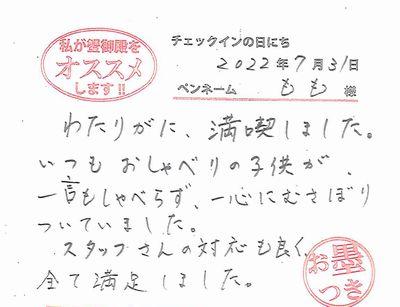 私が蟹御殿を
オススメ
します!!
チェックインの日にち
2022年7月31日
ペンネーム もも 様
わたりがに、満喫しました。
いつもおしゃべりの子供が、
一言もしゃべらず、一心にむさぼり
ついていました。
スタッフさんの対応も良く、
全て満足しました。
お墨
つき